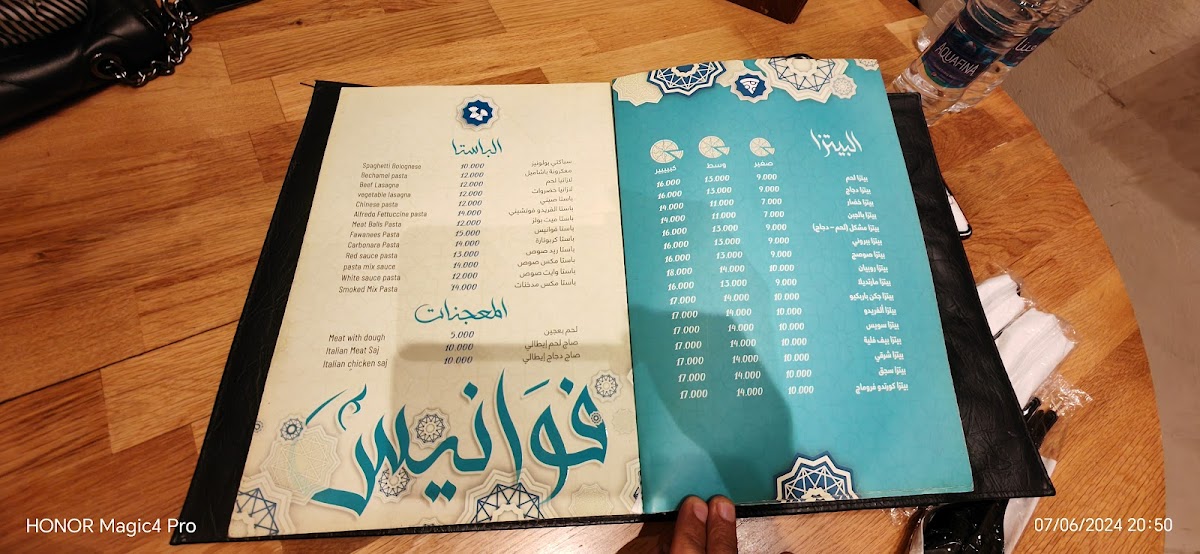 AQUAFINA
الباستا
Spaghetti Bolognese 10.000 سباكتي بولونيز
Bechamel pasta 12.000 معكرونة باشاميل
Beef Lasagna 12.000 لازانيا لحم
vegetable lasagna 12.000 لازانيا خضروات
Chinese pasta 12.000 باستا صيني
Alfredo Fettuccine pasta 14.000 باستا الفريدو فوتشيني
Meat Balls Pasta 12.000 باستا ميت بولز
Fawanees Pasta 15.000 باستا فوانيس
Carbonara Pasta 14.000 باستا كربونارة
Red sauce pasta 13.000 باستا ريد صوص
pasta mix sauce 14.000 باستا مكس صوص
White sauce pasta 12.000 باستا وايت صوص
Smoked Mix Pasta 14.000 باستا مكس مدخنات
المعجنات
Meat with dough 5.000 لحم بعجين
Italian Meat Saj 10.000 صاج لحم إيطالي
Italian chicken saj 10.000 صاج دجاج إيطالي
فوانيس
البيتزا
صغير وسط كبيييير
بيتزا لحم 9.000 13.000 16.000
بيتزا دجاج 9.000 13.000 16.000
بيتزا خضار 7.000 11.000 14.000
بيتزا بالجبن 7.000 11.000 14.000
بيتزا مشكل (لحم - دجاج) 9.000 13.000 16.000
بيتزا ببروني 9.000 13.000 16.000
بيتزا صوصج 9.000 13.000 16.000
بيتزا روبيان 10.000 14.000 18.000
بيتزا مارتديلا 9.000 13.000 16.000
بيتزا جكن باربكيو 10.000 14.000 17.000
بيتزا ألفريدو 10.000 14.000 17.000
بيتزا سويس 10.000 14.000 17.000
بيتزا بيف فلية 10.000 14.000 17.000
بيتزا شرقي 10.000 14.000 17.000
بيتزا سجق 10.000 14.000 17.000
بيتزا كوردو فروماج 10.000 14.000 17.000
HONOR Magic4 Pro
07/06/2024 20:50